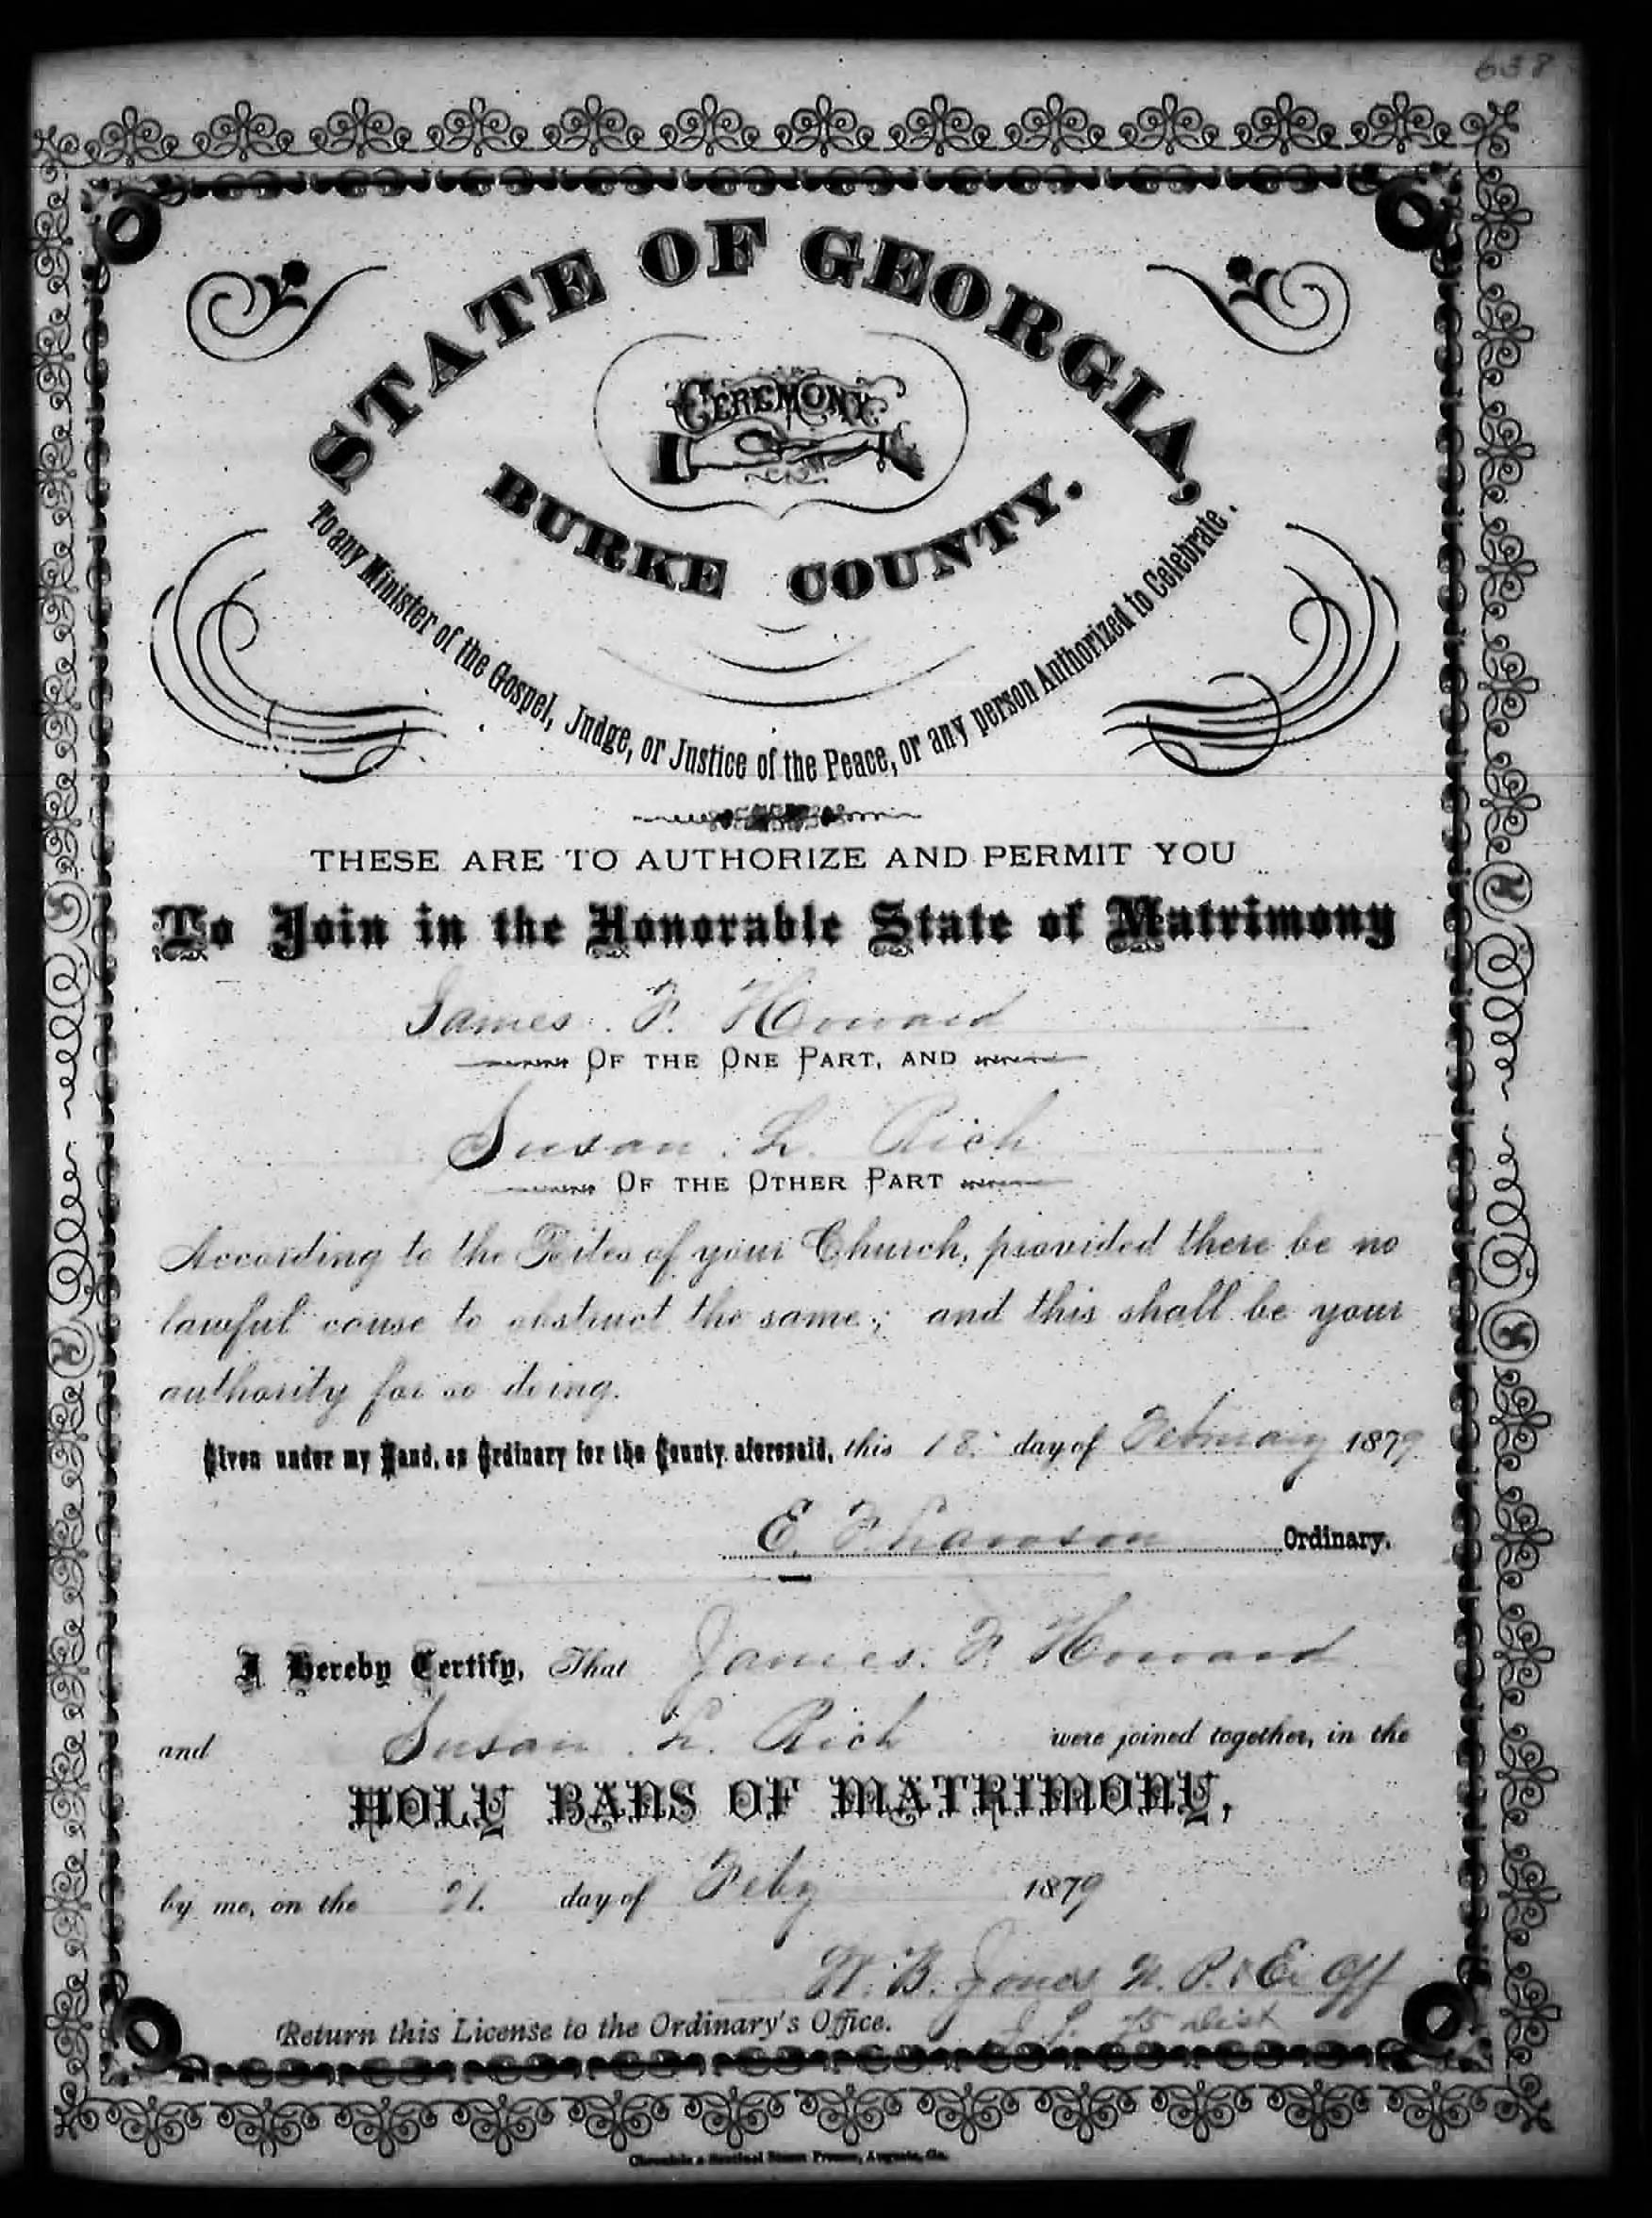 638
STATE OF GEORGIA,
CEREMONY
BURKE COUNTY.
To any Minister of the Gospel, Judge, or Justice of the Peace, or any person Authorized to Celebrate.
THESE ARE TO AUTHORIZE AND PERMIT YOU
To Join in the Honorable State of Matrimony
James. F. Howard
OF THE ONE PART, AND
Susan. L. Rich
OF THE OTHER PART
According to the Rites of your Church, provided there be no
lawful cause to obstruct the same; and this shall be your
authority for so doing.
Given under my Hand, as Ordinary for the County aforesaid, this 18. day of February 1879
E. F. Lawson Ordinary.
I Hereby Certify, That James. F. Howard
and Susan. L. Rich were joined together, in the
HOLY BANS OF MATRIMONY,
by me, on the 21. day of Feby 1879
W. B. Jones N. P. & Ex Off
Return this License to the Ordinary's Office. J. P. 75 Dist
Chronicle & Sentinel Steam Presses, Augusta, Ga.